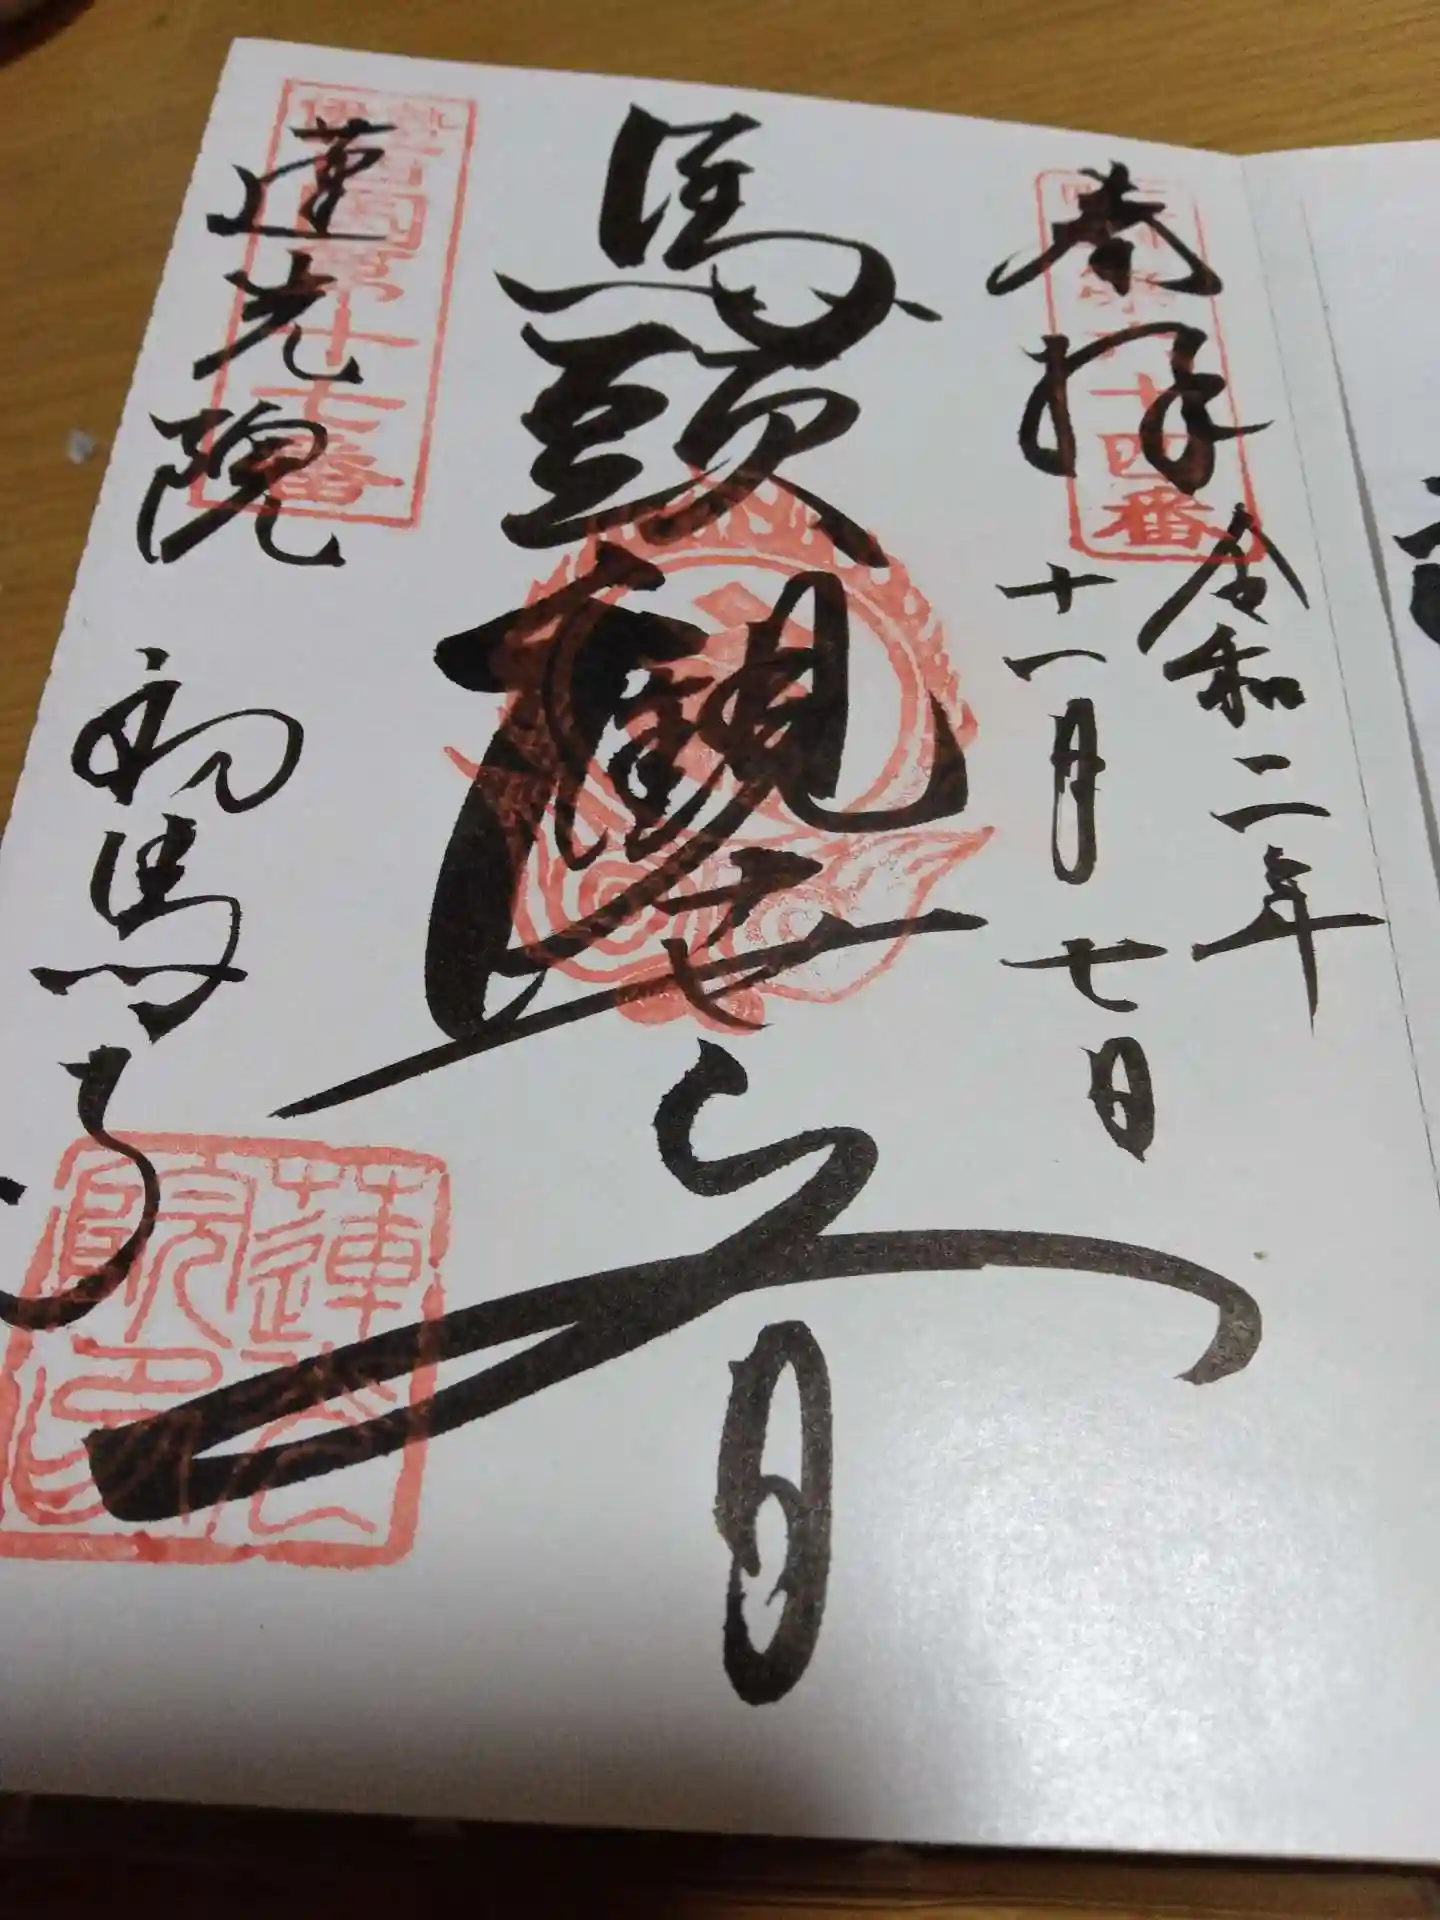 奉拝
令和二年
十一月七日
馬頭観世音
蓮光院
初馬寺
十四番
第十七番
蓮光院印